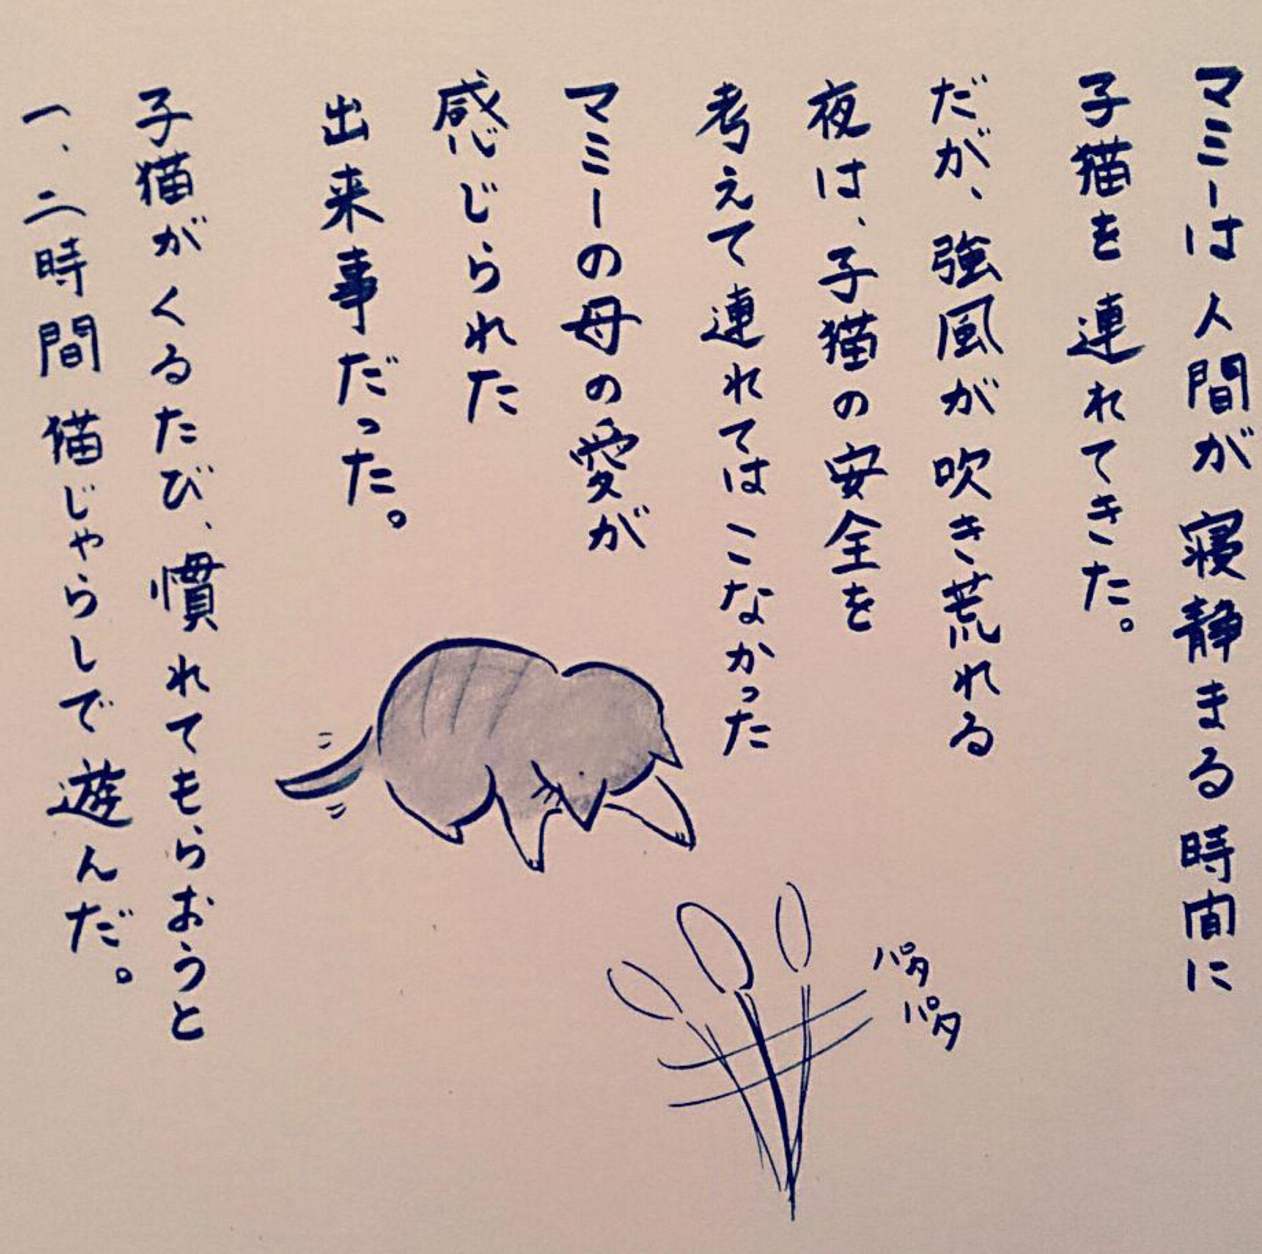 マミーは人間が寝静まる時間に
子猫を連れてきた。
だが、強風が吹き荒れる
夜は、子猫の安全を
考えて連れてはこなかった
マミーの母の愛が
感じられた
出来事だった。
子猫がくるたび、慣れてもらおうと
一、二時間猫じゃらしで遊んだ。
パタ
パタ